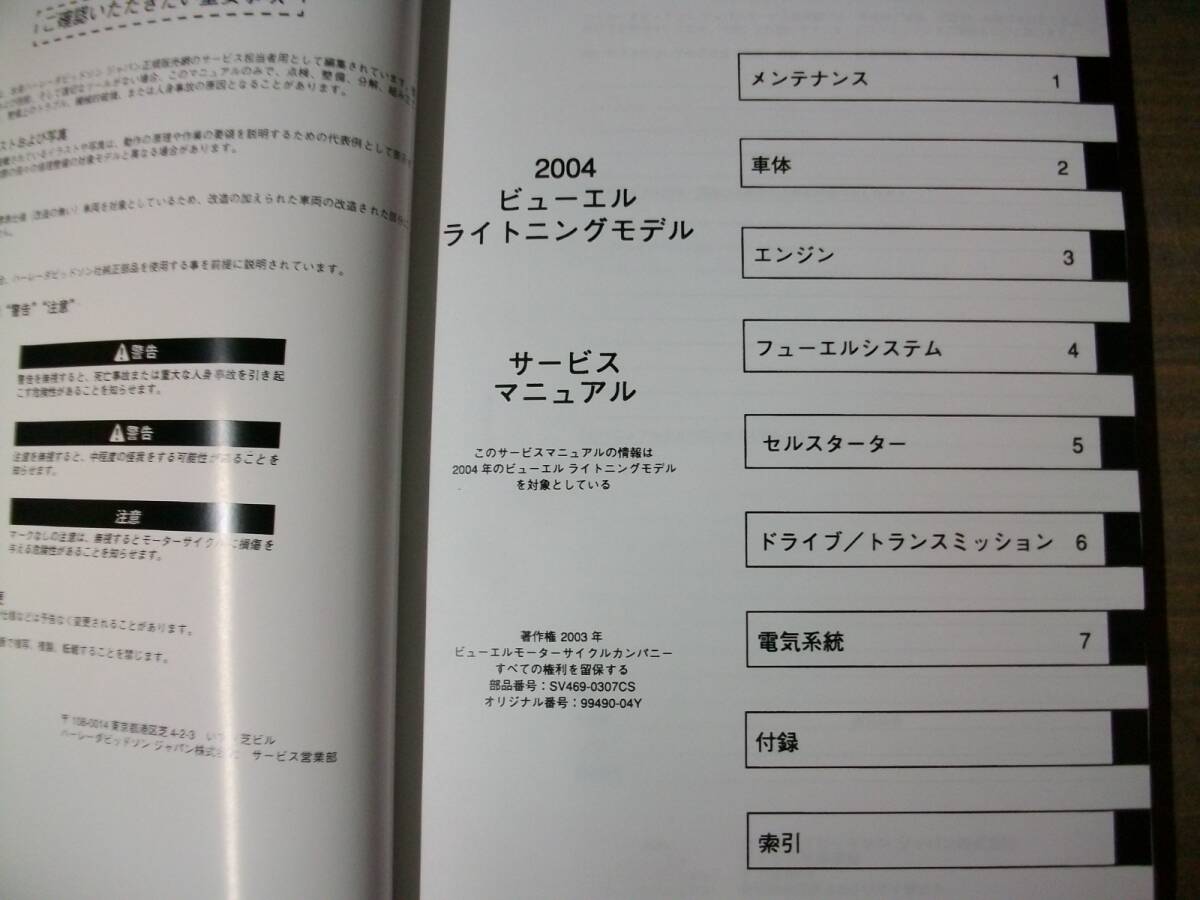 ご確認いただきたい重要事項
ハーレーダビッドソン ジャパン正規販売網のサービス担当者用として編集されています。
そして適切なツールがない場合、このマニュアルのみで、点検、整備、分解、組み立
整備上のトラブル、機械的破損、または人身事故の原因となることがあります。
ストおよび写真
載されているイラストや写真は、動作の原理や作業の要領を説明するための代表例として
の修理整備の対象モデルと異なる場合があります。
仕様（改造の無い）車両を対象としているため、改造の加えられた車両の改造された部分
せん。
ハーレーダビッドソン社純正部品を使用する事を前提に説明されています。
"警告" "注意"
⚠警告
警告を無視すると、死亡事故または重大な人身事故を引き起
こす危険性があることを知らせます。
⚠警告
注意を無視すると、中程度の怪我をする可能性があることを
知らせます。
注意
マークなしの注意は、無視するとモーターサイクルに損傷を
与える危険性があることを知らせます。
更
仕様などは予告なく変更されることがあります。
断で複写、複製、転載することを禁じます。
〒108-0014 東京都港区芝4-2-3 芝ビル
ハーレーダビッドソン ジャパン株式会社 サービス営業部
2004
ビューエル
ライトニングモデル
サービス
マニュアル
このサービスマニュアルの情報は
2004 年のビューエル ライトニングモデル
を対象としている
著作権 2003 年
ビューエルモーターサイクルカンパニー
すべての権利を留保する
部品番号：SV469-0307CS
オリジナル番号：99490-04Y
メンテナンス 1
車体 2
エンジン 3
フューエルシステム 4
セルスターター 5
ドライブ／トランスミッション 6
電気系統 7
付録
索引